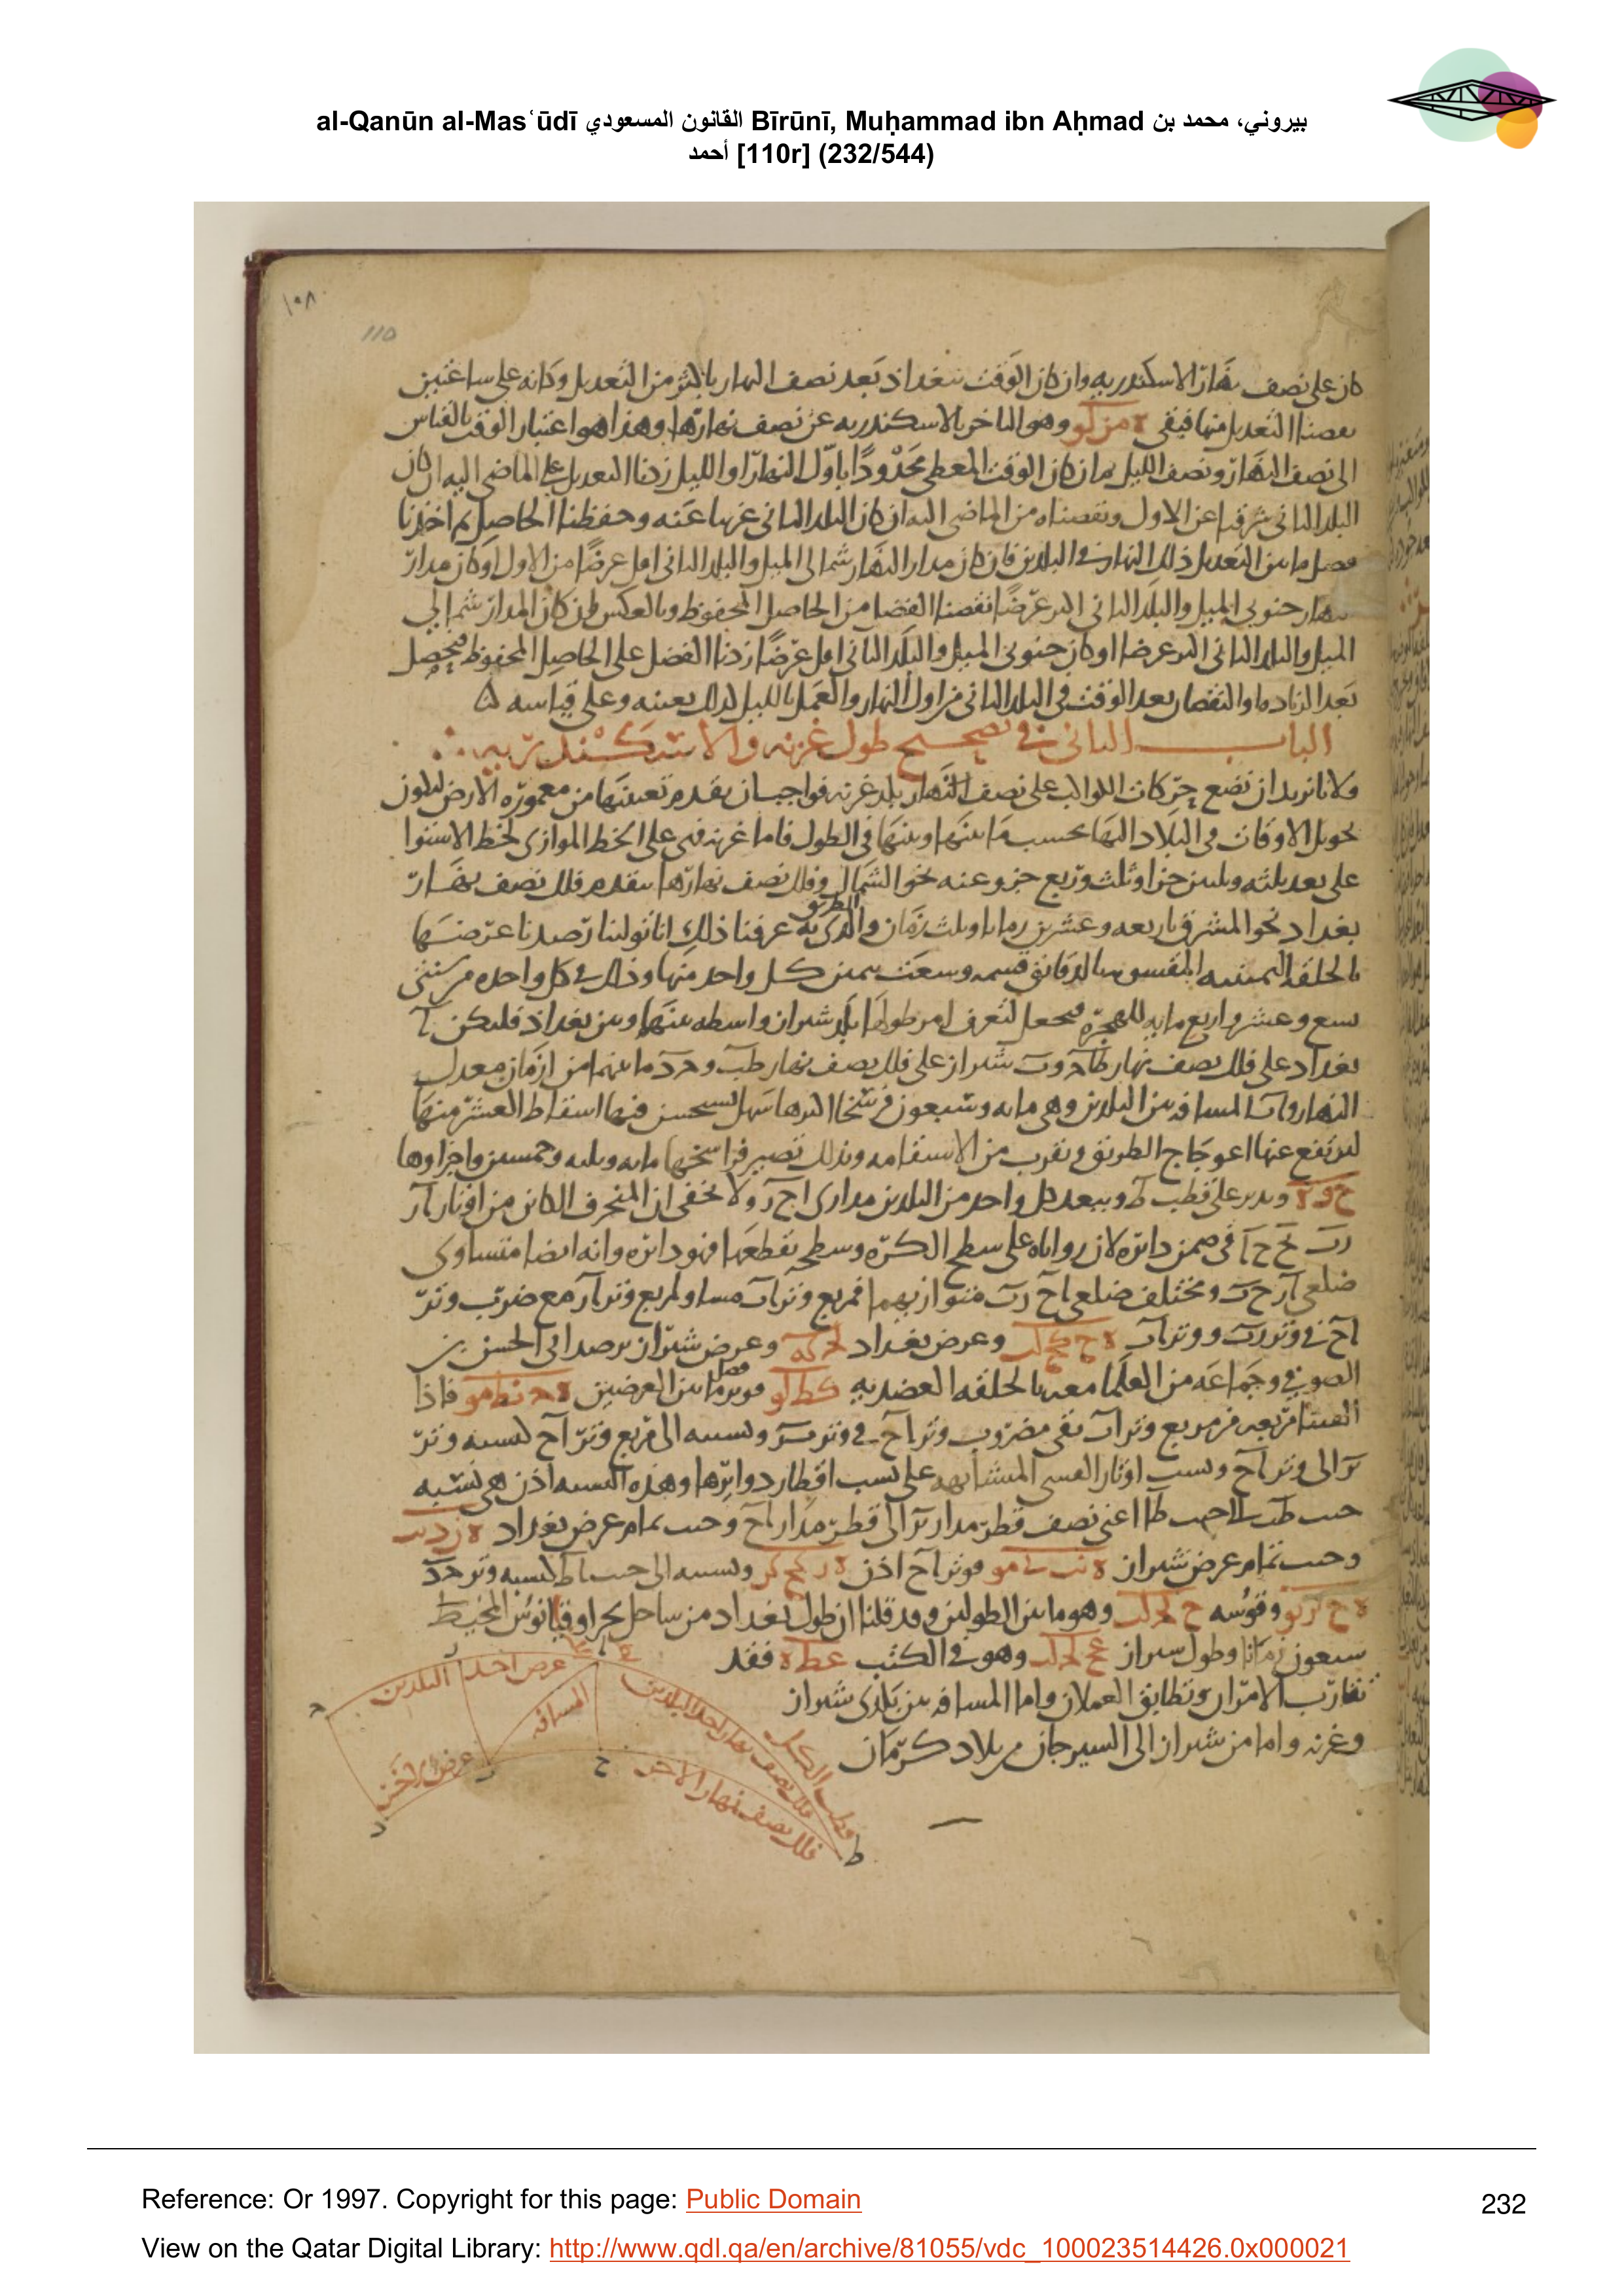 al-Qanūn al-Masʿūdī القانون المسعودي Bīrūnī, Muḥammad ibn Aḥmad بيروني، محمد بن
أحمد [110r] (232/544)
١٠٨
110
كان على نصف نهار الاسكندريه وان كان الوقت ببغداد بعد نصف النهار باكثر من التعديل وكانه على ساعتين
نقصنا التعديل منها فيبقى ه مز لو وهو التاخر بالاسكندريه عن نصف نهارها وهذا هو اعتبار الوقت بالقياس
الى نصف النهار ونصف الليل فان كان الوقت المعطى محدودا باول النهار او الليل زدنا التعديل على الماضى اليه ان كان
البلد الثانى شرقيا عن الاول ونقصناه من الماضى اليه ان كان البلد الثانى غربيا عنه وحفظنا الحاصل ثم اخذنا
فضل ما بين التعديل ذلك النهار فى البلدين فان كان مدار النهار شمالى الميل والبلد الثانى اقل عرضا من الاول او كان مدار
النهار جنوبى الميل والبلد الثانى اكثر عرضا نقصنا الفضل من الحاصل المحفوظ وبالعكس ان كان المدار شمالى
الميل والبلد الثانى اكثر عرضا او كان جنوبى الميل والبلد الثانى اقل عرضا زدنا الفضل على الحاصل المحفوظ فيحصل
بعد الزياده او النقصان بعد الوقت فى البلد الثانى من اول النهار والعمل بالليل كذلك بعينه وعلى قياسه
الباب الثانى فى تصحيح طول غزنه والاسكندريه
ولانا نريد ان نضع حركات الكواكب على نصف النهار بلد غزنه فواجب ان يقدم تعيينها من معموره الارض ليكون
تحويل الاوقات فى البلاد اليها بحسب ما بينها وبينها فى الطول فاما غزنه فهى على الخط الموازى لخط الاستوا
على بعد ثلثه وثلثين جزا وثلث وربع جزو عنه نحو الشمال وفلك نصف نهارها يتقدم فلك نصف نهار
بغداد نحو المشرق باربعه وعشرين زمانا وثلث زمان والطريق الذى به عرفنا ذلك انا تولينا رصدنا عرضها
بالحلقه اليمينيه المقسومه بالدقائق قسمه وسعت كل واحد منها وذلك فى كل واحده من سنتى
تسع وعشر واربع مايه للهجره فيجعل لتعرف امر طولها بلد شيراز واسطه بينها وبين بغداد فليكن آ
بغداد على فلك نصف نهار طآح وب شيراز على فلك نصف نهار طب وحد ما بينهما من ازمان معدل
النهار وآب المسافه بين البلدين وهى مايه وسبعون فرسخا اكثرها سهل يستحسن فيها اسقاط العشر منها
ليرتفع عنها اعوجاج الطريق وتقرب من الاستقامه وبذلك تصير فراسخها مايه وثلثه وخمسين واجزاوها
ح و ه وندير على قطب ط وببعد كل واحد من البلدين مدارى اح ز ولا يخفى ان المنحرف الكائن من اوتار آز
زب ب ح ح آ فى ضمن دائره لان زواياه على سطح الكره وسطحه يقطعها فهو دائره وانه ايضا متساوى
ضلعى آز ح ب ومختلف ضلعى اح زب متوازييهما فمربع وتر آب مساو لمربع وتر آز مع ضرب وتر
آح فى وتر زب ووتر آب وعرض بغداد لح كه وعرض شيراز برصد ابى الحسين بن
الصوفى وجماعه من العلما معه بالحلقه العضديه كط لو فوتر فضل ما بين العرضين ه ح نط مو فاذا
القينا مربعه من مربع وتر آب بقى مضروب وتر آح فى وتر ب ز ونسبه الى مربع وتر آح كنسبه وتر
بز الى وتر آح ونسب اوتار القسى المتشابهه على نسب اقطار دوائرها وهذه النسبه اذن هى نسبه
جيب طب الى جيب طا اعنى نصف قطر مدار بز الى قطر مدار اح وجيب تمام عرض بغداد
وجيب تمام عرض شيراز فوتر آح اذن ونسبه الى جيب اط كنسبه وتر حد
وقوسه وهو ما بين الطولين وقد قلنا ان طول بغداد من ساحل بحر اوقيانوس المحيط
سبعون زمانا وطول شيراز وهو فى الكتب عط ه فقد
تقارب الامران وتطابق العملان واما المسافه بين بلدى شيراز
وغزنه واما من شيراز الى السيرجان من بلاد كرمان
عرض احد البلدين
المسافه
عرض الاخر
فلك نصف نهار احد البلدين
فلك نصف نهار الاخر
قطب الكل
ط
ح
Reference: Or 1997. Copyright for this page: Public Domain
232
View on the Qatar Digital Library: http://www.qdl.qa/en/archive/81055/vdc_100023514426.0x000021